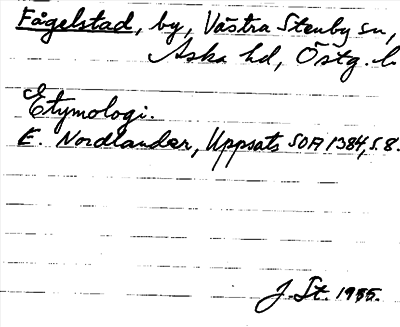 Fågelstad, by, Västra Stenby sn,
Aska hd, Östg. l.
Etymologi.
E. Nordlander, Uppsats SOA 1384, s. 8.
J. St. 1955.